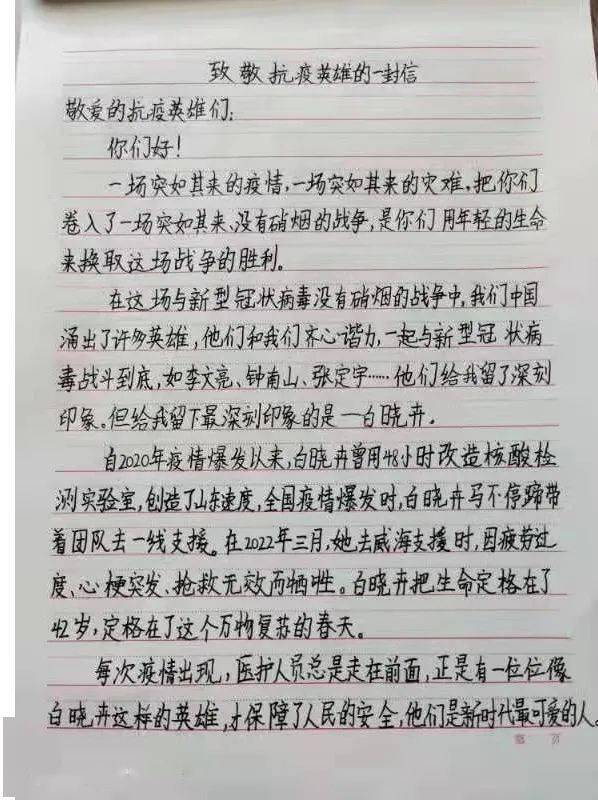 致敬抗疫英雄的一封信
敬爱的抗疫英雄们:
你们好!
一场突如其来的疫情,一场突如其来的灾难,把你们
卷入了一场突如其来、没有硝烟的战争,是你们用年轻的生命
来换取这场战争的胜利。
在这场与新型冠状病毒没有硝烟的战争中,我们中国
涌出了许多英雄,他们和我们齐心谐力,一起与新型冠状病
毒战斗到底,如李文亮、钟南山、张定宇……他们给我留了深刻
印象。但给我留下最深刻印象的是一白晓卉.
自2020年疫情爆发以来,白晓卉曾用48小时改造核酸检
测实验室,创造了山东速度,全国疫情爆发时,白晓卉马不停蹄带
着团队去一线支援。在2022年三月,她去威海支援时,因疲劳过
度、心梗突发、抢救无效而牺牲。白晓卉把生命定格在了
42岁,定格在了这个万物复苏的春天。
每次疫情出现,医护人员总是走在前面,正是有一位位像
白晓卉这样的英雄,才保障了人民的安全,他们是新时代最可爱的人。
第 页